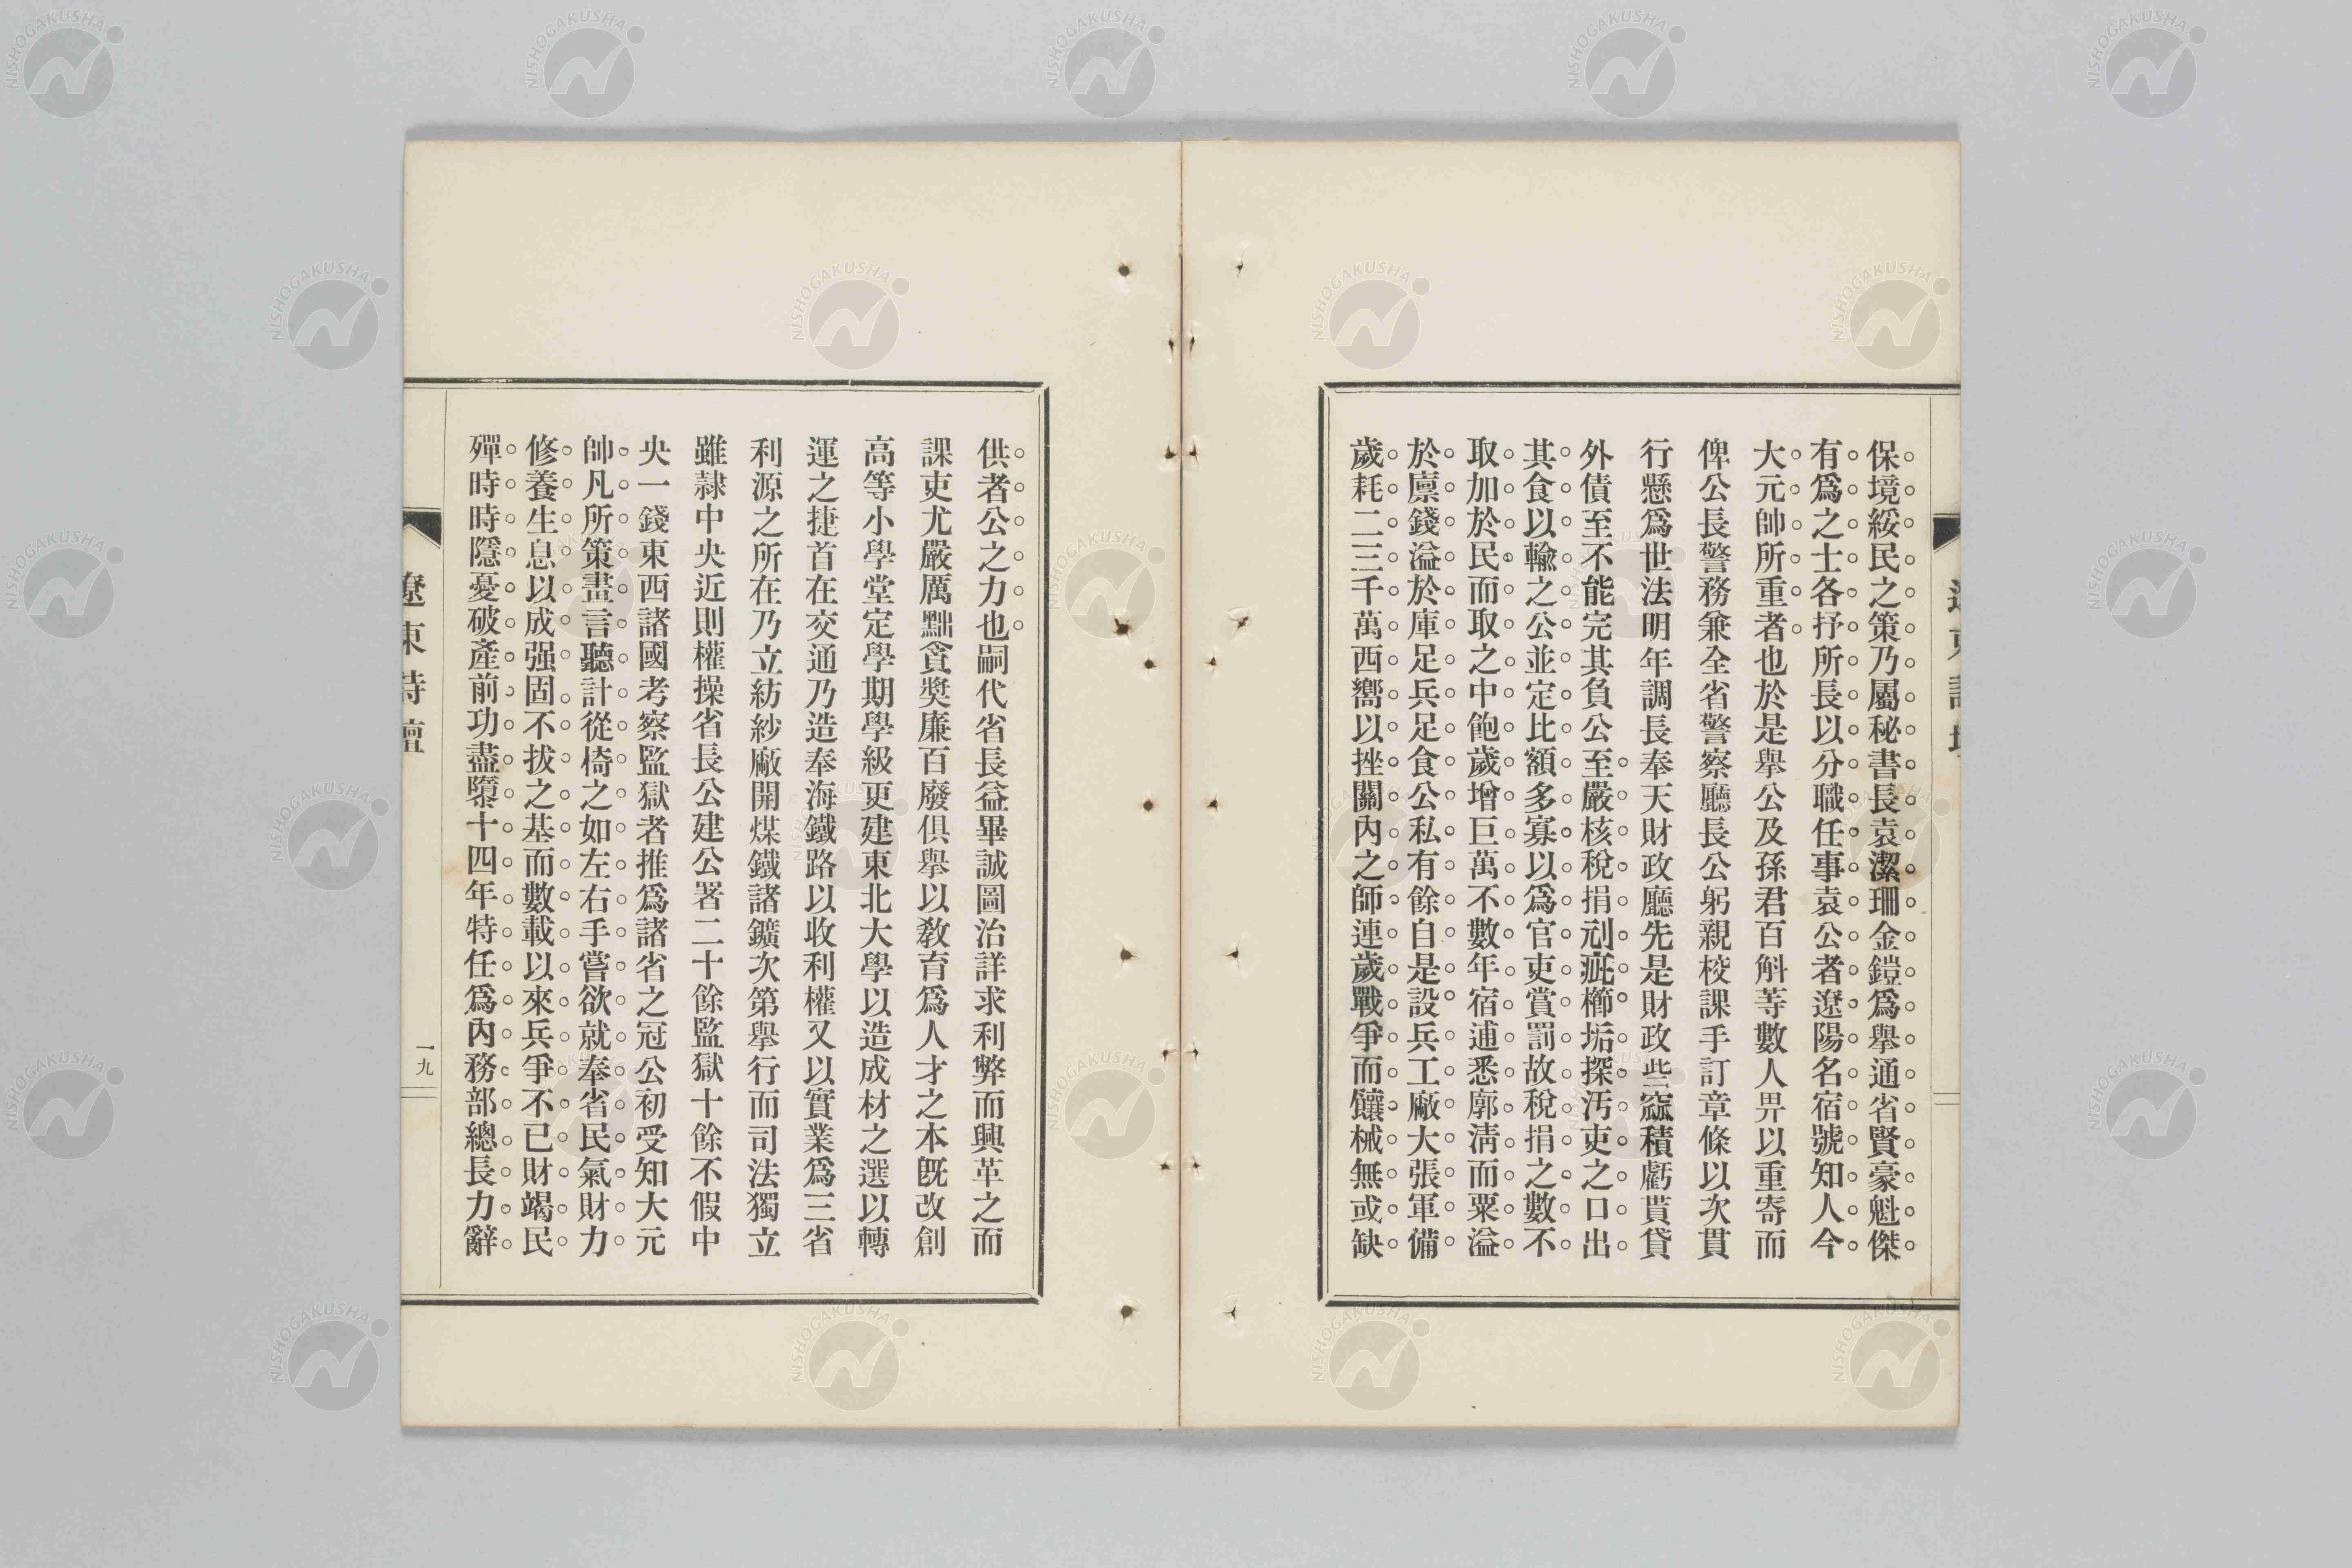 保境綏民之策乃屬秘書長袁潔珊金鎧爲舉通省賢豪魁傑
有爲之士各抒所長以分職任事袁公者遼陽名宿號知人今
大元帥所重者也於是舉公及孫君百斛等數人畀以重寄而
俾公長警務兼全省警察廳長公躬親校課手訂章條以次貫
行懸爲世法明年調長奉天財政廳先是財政呰窳積虧貰貸
外債至不能完其負公至嚴核稅捐刓疵櫛垢探汚吏之口出
其食以輸之公並定比額多寡以爲官吏賞罰故稅捐之數不
取加於民而取之中飽歲增巨萬不數年宿逋悉廓淸而粟溢
於廪錢溢於庫足兵足食公私有餘自是設兵工廠大張軍備
歲耗二三千萬西嚮以挫關內之師連歲戰爭而饟械無或缺
供者公之力也嗣代省長益畢誠圖治詳求利弊而興革之而
課吏尤嚴厲黜貪奬廉百廢俱擧以敎育爲人才之本旣改創
高等小學堂定學期學級更建東北大學以造成材之選以轉
運之捷首在交通乃造奉海鐵路以收利權又以實業爲三省
利源之所在乃立紡紗廠開煤鐵諸鑛次第擧行而司法獨立
雖隷中央近則權操省長公建公署二十餘監獄十餘不假中
央一錢東西諸國考察監獄者推爲諸省之冠公初受知大元
帥凡所策畫言聽計從椅之如左右手嘗欲就奉省民氣財力
修養生息以成强固不拔之基而數載以來兵爭不已財竭民
殫時時隱憂破產前功盡隳十四年特任爲內務部總長力辭
遼東詩壇
一九
NISHOGAKUSHA